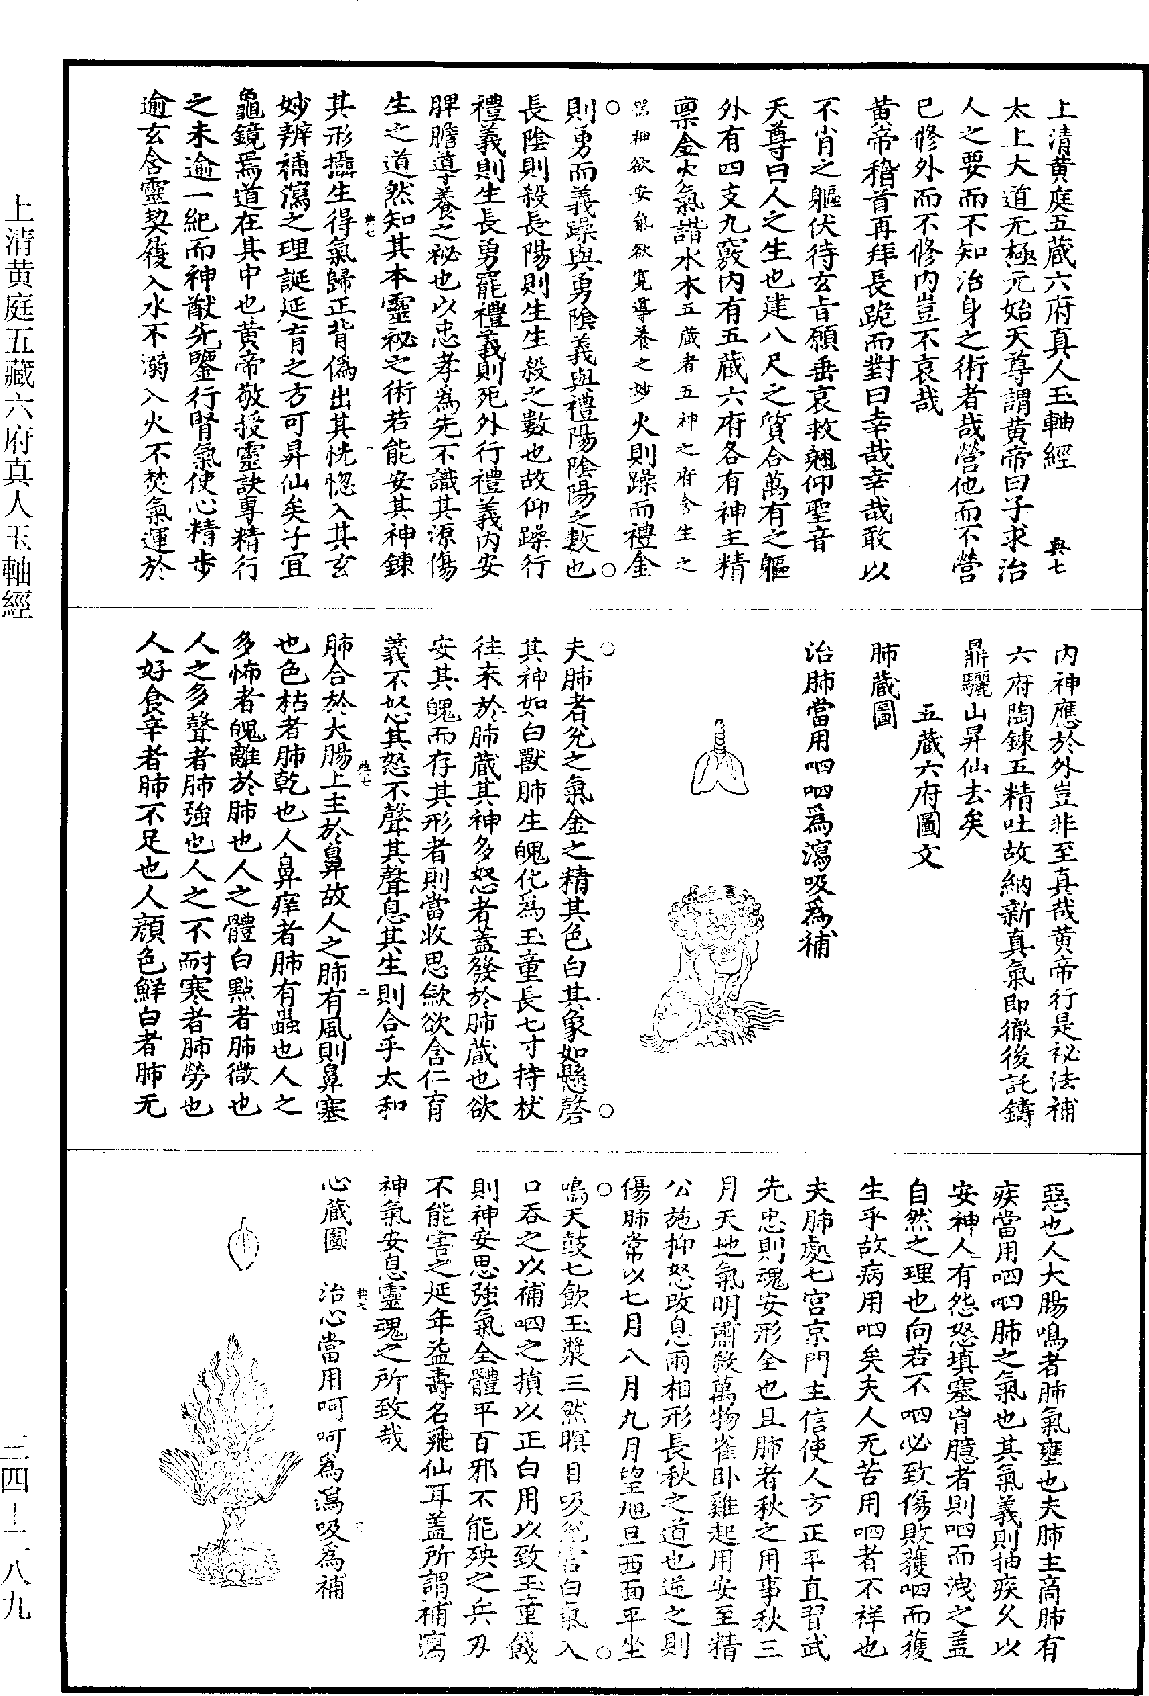 上清黄庭五藏六府真人玉軸經
典七
太上大道无極元始天尊謂黄帝曰子求治
人之要而不知治身之術者哉營他而不營
已修外而不修内豈不哀哉
黄帝稽首再拜長跪而對曰幸哉幸哉敢以
不肖之軀伏待玄旨願垂哀救翹仰聖音
天尊曰人之生也建八尺之質合萬有之軀
外有四支九竅内有五藏六府各有神主精
稟金火氣諧水木五藏者五神之府含生之
欲安氣欲寬導養之妙火則躁而禮金
則勇而義躁與勇陰義與禮陽陰陽之數也
長陰則殺長陽則生生殺之數也故仰躁行
禮義則生長勇寵禮義則死外行禮義内安
脾膽導養之祕也以忠孝為先不識其源傷
生之道然知其本靈祕之術若能安其神錬
其形攝生得氣歸正背偽出其恍惚入其玄
妙辨補瀉之理誕延育之方可昇仙矣子宜
龜鏡焉道在其中也黄帝敬授靈訣專精行
之未逾一紀而神猷先鑒行腎氣使心精步
逾玄含靈契後入水不溺入火不焚氣運於
内神應於外豈非至真哉黄帝行是祕法補
六府陶錬五精吐故納新真氣即徹後託鑄
鼎驪山昇仙去矣
五藏六府圖文
肺藏圖
治肺當用呬呬爲瀉吸爲補
夫肺者兊之氣金之精其色白其象如懸磬
其神如白獸肺生魄化爲玉童長七寸持杖
往來於肺藏其神多怒者蓋發於肺藏也欲
安其魄而存其形者則當收思歛欲含仁育
義不怒其怒不聲其聲息其生則合乎太和
肺合於大腸上主於鼻故人之肺有風則鼻塞
也色枯者肺乾也人鼻痒者肺有蟲也人之
多怖者魄離於肺也人之體白點者肺微也
人之多聲者肺強也人之不耐寒者肺勞也
人好食辛者肺不足也人顔色鮮白者肺无
惡也人大腸鳴者肺氣壅也夫肺主商肺有
疾當用呬呬肺之氣也其氣義則抽疾久以
安神人有怨怒填塞胷臆者則呬而洩之蓋
自然之理也向若不呬必致傷敗護呬而獲
生乎故病用呬矣夫人无苦用呬者不祥也
夫肺處七宫京門主信使人方正平直習武
先忠則魂安形全也且肺者秋之用事秋三
月天地氣明肅殺萬物雀卧雞起用安至精
公施抑怒改息兩相形長秋之道也逆之則
傷肺常以七月八月九月望旭旦西面平坐
鳴天鼓七飲玉漿三然瞑目吸兊宫白氣入
口吞之以補呬之損以正白用以致玉童餞
則神安思強氣全體平百邪不能殃之兵刃
不能害之延年益壽名飛仙耳蓋所謂補瀉
神氣安息靈魂之所致哉
心藏圖　治心當用呵呵為瀉吸為補
上清黄庭五藏六府真人玉軸經
三四—一八九